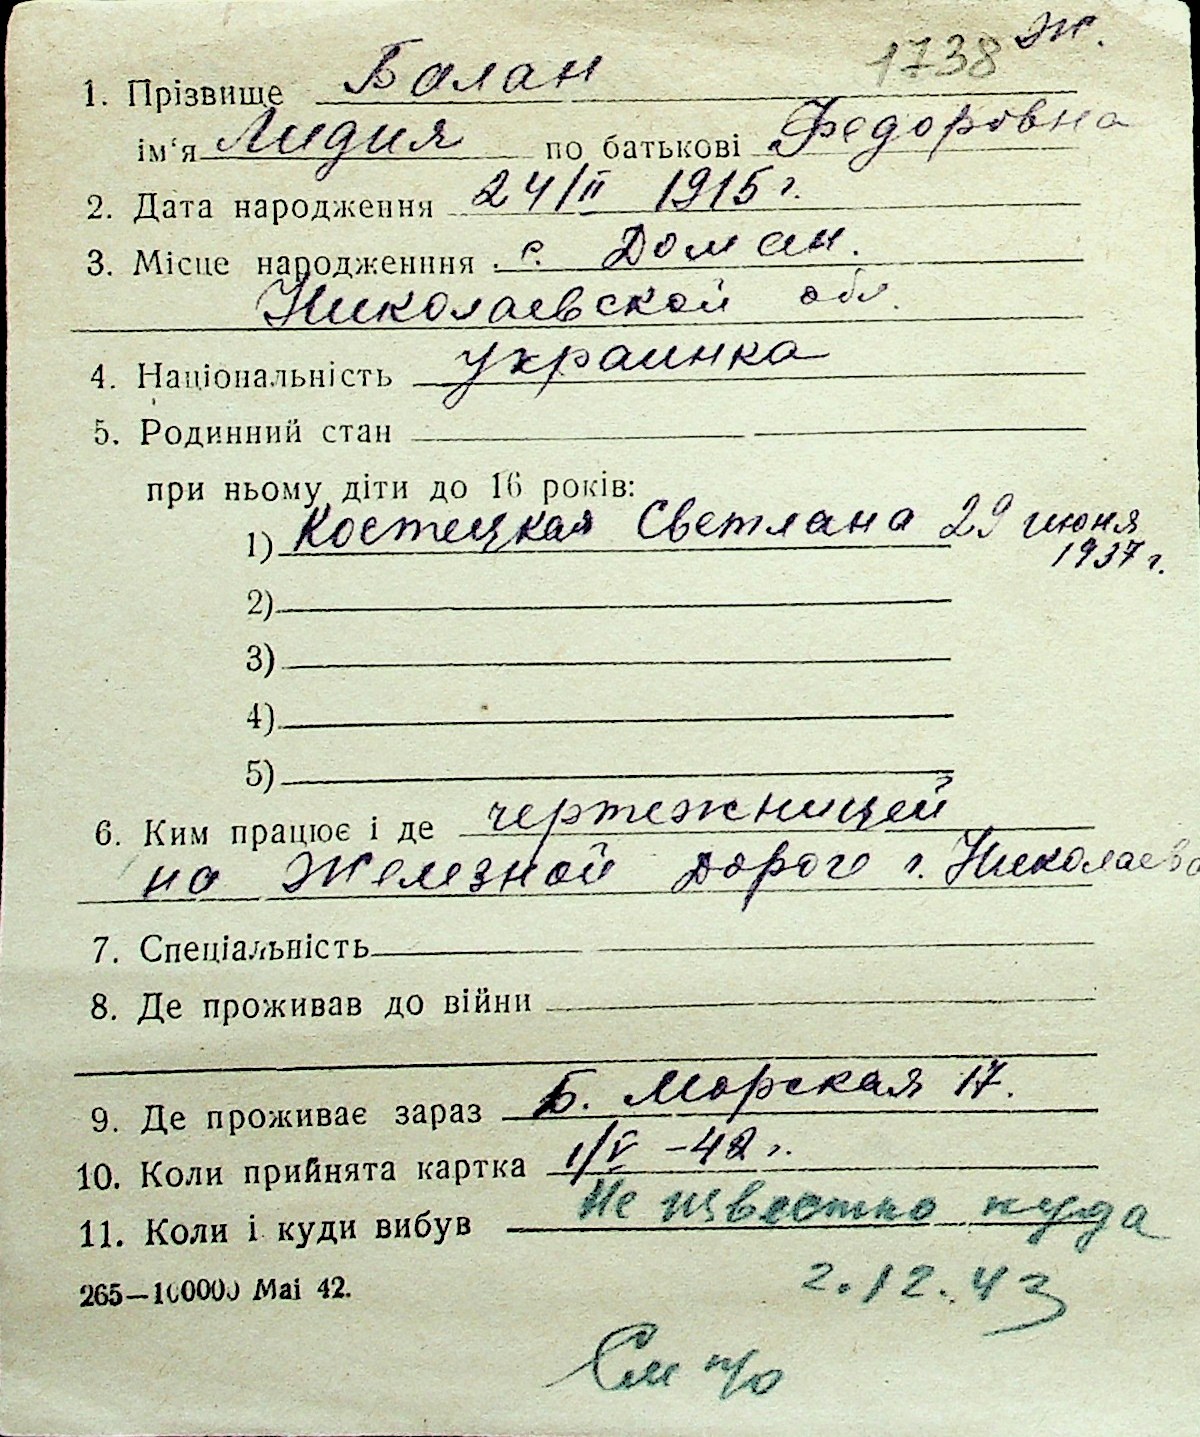 1738 Ж.
1. Прізвище Балан
ім'я Лидия по батькові Федоровна
2. Дата народження 24/II 1915 г.
3. Місце народженння с. Доман.
Николаевской обл.
4. Національність украинка
5. Родинний стан
при ньому діти до 16 років:
1) Костецкая Светлана 29 июня
1937 г.
2)
3)
4)
5)
6. Ким працює і де чертежницей
на Железной дороге г. Николаева
7. Спеціальність
8. Де проживав до війни
9. Де проживає зараз Б. Морская 17.
10. Коли прийнята картка 1/V -42 г.
11. Коли і куди вибув Не известно куда
2.12.43
265—100000 Mai 42.
См